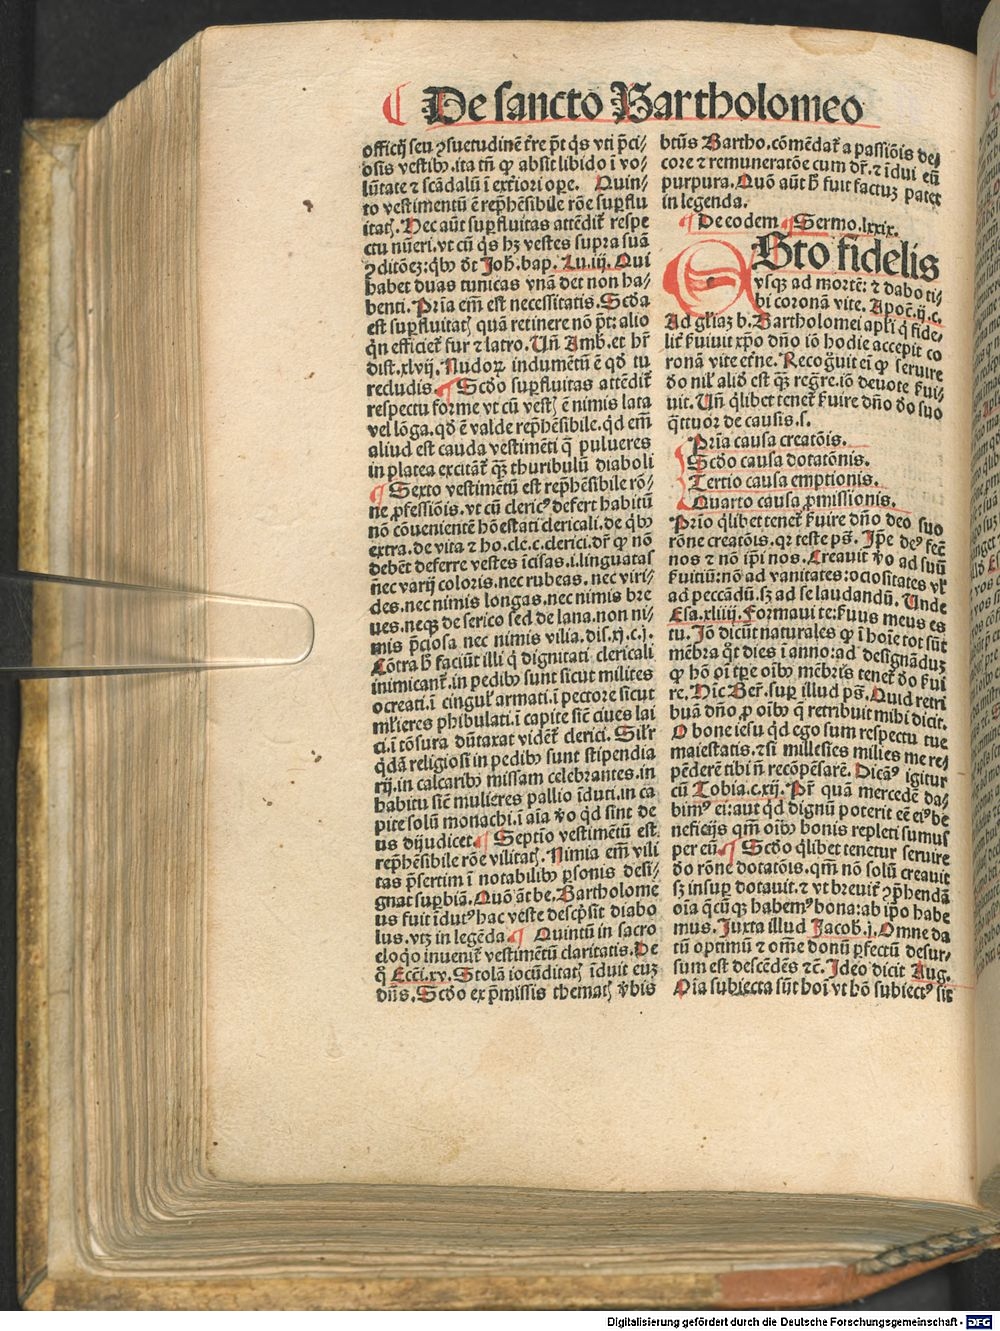 De sancto Bartholomeo
officij seu ↄsuetudinē t̄re p̄t q̇s vti p̄ci/
osis vestibꝫ. ita tn̄ ꝙ absit libido ī vo/
lūtate ⁊ scādalū ī exteriori oꝑe. Quin/
to vestimentū ē rep̄hēsibile rōe suꝑflu
itatꝭ. Hec aūt suꝑfluitas attēdit̄ respe
ctu nūeri. vt cū q̇s hꝫ vestes supra suā
ↄditōeꝫ: q̇bꝫ d̄t Joh̄. bap. Lu. iij. Qui
habet duas tunicas vnā det non ha/
benti. Pria em̄ est necessitatis. Scd̄a
est suꝑfluitatꝭ quā retinere nō p̄t: alio
q̇n efficiet̄ fur ⁊ latro. Un̄ Amb. et hr̄
dist. xlvij. Nudoꝝ indumētū ē qd̄ tu
recludis. Scd̄o suꝑfluitas attēdit̄
respectu forme vt cū vestꝭ ē nimis lata
vel lōga. qd̄ ē valde rep̄hēsibile. qd̄ em̄
aliud est cauda vestimēti q̄ pulueres
in platea excitāt̄ q̄ꝫ thuribulū diaboli
Sexto vestimētū est rep̄hēsibile rō/
ne ꝓfessiōis. vt cū cleric⁹ defert habitū
nō cōuenientē hōestati clericali. de q̇bꝫ
extra. de vita ⁊ ho. cle. c. clerici. dr̄ ꝙ nō
debēt deferre vestes īcisas. i. linguatas
nec varij coloris. nec rubeas. nec viri/
des. nec nimis longas. nec nimis bre
ues. neqꝫ de serico sed de lana. non ni/
mis p̄ciosa nec nimis vilia. dis. xj. c. j.
Cōtra h̄ faciūt illi q̇ dignitati clericali
inimicant̄. in pedibꝫ sunt sicut milites
ocreati. ī cingul̄ armati. ī pectore sicut
ml̄ieres phibulati. ī capite sic̄ ciues lai
ci. ī tōsura dūtaxat vident̄ clerici. Sil̄r
q̇dā religiosi in pedibꝫ sunt stipendia
rij. in calcaribꝫ missam celebrantes. in
habitu sic̄ mulieres pallio īduti. in ca
pite solū monachi. ī aīa v̄o qd̄ sint de
us dijudicet. Septīo vestimētū est
rep̄hēsibile rōe vilitatꝭ. Nimia em̄ vili
tas p̄sertim ī notabilibꝫ ꝑsonis desi/
gnat suꝑbiā. Quō āt be. Bartholome
us fuit īdut⁹ hac veste descp̄sit diabo
lus. vtꝫ in legēda. Quintū in sacro
eloq̇o inuenit̄ vestimētū claritatis. De
q̊ Eccī. xv. Stolā iocūditatꝭ īduit euꝫ
dn̄s. Scd̄o ex p̄missis thematꝭ v̄bis
btūs Bartho. cōmēdat̄ a passiōis de/
core ⁊ remuneratōe cum dr̄. ⁊ īdui eū
purpura. Quō aūt h̄ fuit factuꝫ patet
in legenda.
De eodem Sermo. lxxix.
Esto fidelis
vsqꝫ ad mortē: ⁊ dabo ti/
bi coronā vite. Apoc̄. ij. c.
Ad gl̄iaꝫ b. Bartholomei apl̄i q̇ fide/
lit̄ ẜuiuit xp̄o dn̄o iō hodie accepit co
ronā vite et̄ne. Recog̊uit ei ꝙ seruire
do nil̄ alid̄ est q̄ꝫ reḡre. iō deuote ẜui/
uit. Un̄ q̇libet tenet̄ ẜuire dn̄o do suo
q̇ttuor de causis. s.
Pria causa creatōis.
Scd̄o causa dotatōnis.
Tertio causa emptionis.
Quarto causa ꝓmissionis.
Prio q̇libet tenet̄ ẜuire dn̄o deo suo
rōne creatōis. qꝛ teste ps̄. Ip̄e de⁹ fec̄
nos ⁊ nō ip̄i nos. Creauit v̄o ad suū
ẜuitiū: nō ad vanitates: ociositates vl̄
ad peccādū. sꝫ ad se laudandū. Unde
Esa. xliiij. Formaui te: ẜuus meus es
tu. Jō dicūt naturales ꝙ ī hoīe tot sūt
mēbra q̇t dies ī anno: ad designāduꝫ
ꝙ hō oī tꝑe oībꝫ mēbris tenet̄ do ẜui
re. Hīc Ber̄. suꝑ illud ps̄. Quid retri
buā dn̄o ꝓ oībꝫ q̄ retribuit mihi dicit.
O bone iesu qd̄ ego sum respectu tue
maiestatis. ⁊si millesies milies me re/
pēderē tibi n̄ recōpēsarē. Dicam⁹ igitur
cū Tobia. c. xij. Pr̄ quā mercedē da/
bim⁹ ei: aut qd̄ dignū poterit eē ei⁹ be
neficijs qm̄ oībꝫ bonis repleti sumus
per eū. Scd̄o q̇libet tenetur seruire
do rōne dotatōis. qm̄ nō solū creauit
sꝫ insuꝑ dotauit. ⁊ vt breuit̄ ↄp̄hendā
oīa q̄cūqꝫ habem⁹ bona: ab ip̄o habe
mus. Juxta illud Jacob̄. j. Omne da
tū optimū ⁊ om̄e donū ꝑfectū desur/
sum est descēdēs ⁊c̄. Ideo dicit Aug.
Oīa subiecta sūt hoī vt hō subiect⁹ sit
Digitalisierung gefördert durch die Deutsche Forschungsgemeinschaft - DFG